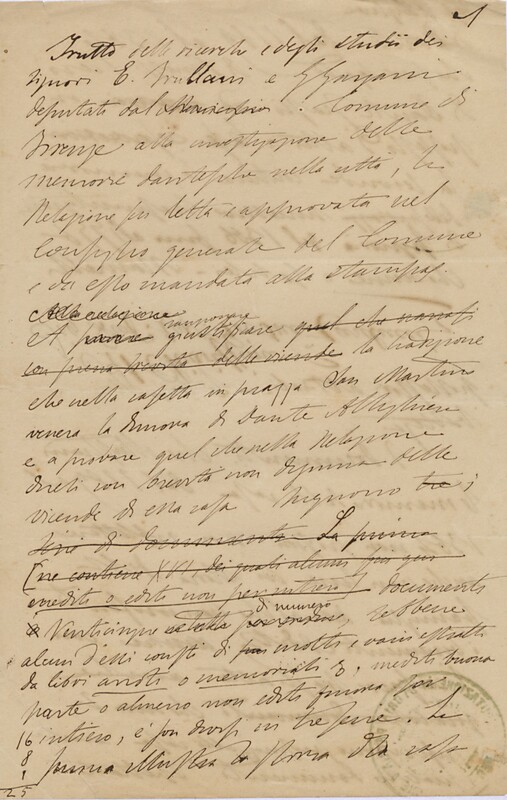 1
Frutto delle ricerche e degli studii dei
signori E. Frullani e G Gargani
deputati dal Municipio. Comune di
Firenze alla investigazione delle
memorie dantesche nella città, la
Relazione fu letta e approvata nel
Consiglio generale del Comune
e da esso mandata alla stampa.
Alla relazione
A provare comprovare giustificare quel che narrasi
con piena brevità delle vicende la tradizione
che nella casetta in piazza San Martino
venera la dimora di Dante Allighieri
e a provare quel che nella Relazione
con brevità non delle
vicende di essa casa seguono tre;
serie di documenti. La prima
(ne contiene XVI, dei quali alcuni fin qui
inediti o editi non per intiero) documenti
Venticinque di numero, sebbene
alcuni d'essi consti di più molti e varii estratti
da libri arroti o memoriali 3, inediti buona
parte o almeno non editi finora per
16 intiero, e son divisi in tre serie. La
8 prima illustra la storia della casa
1
25